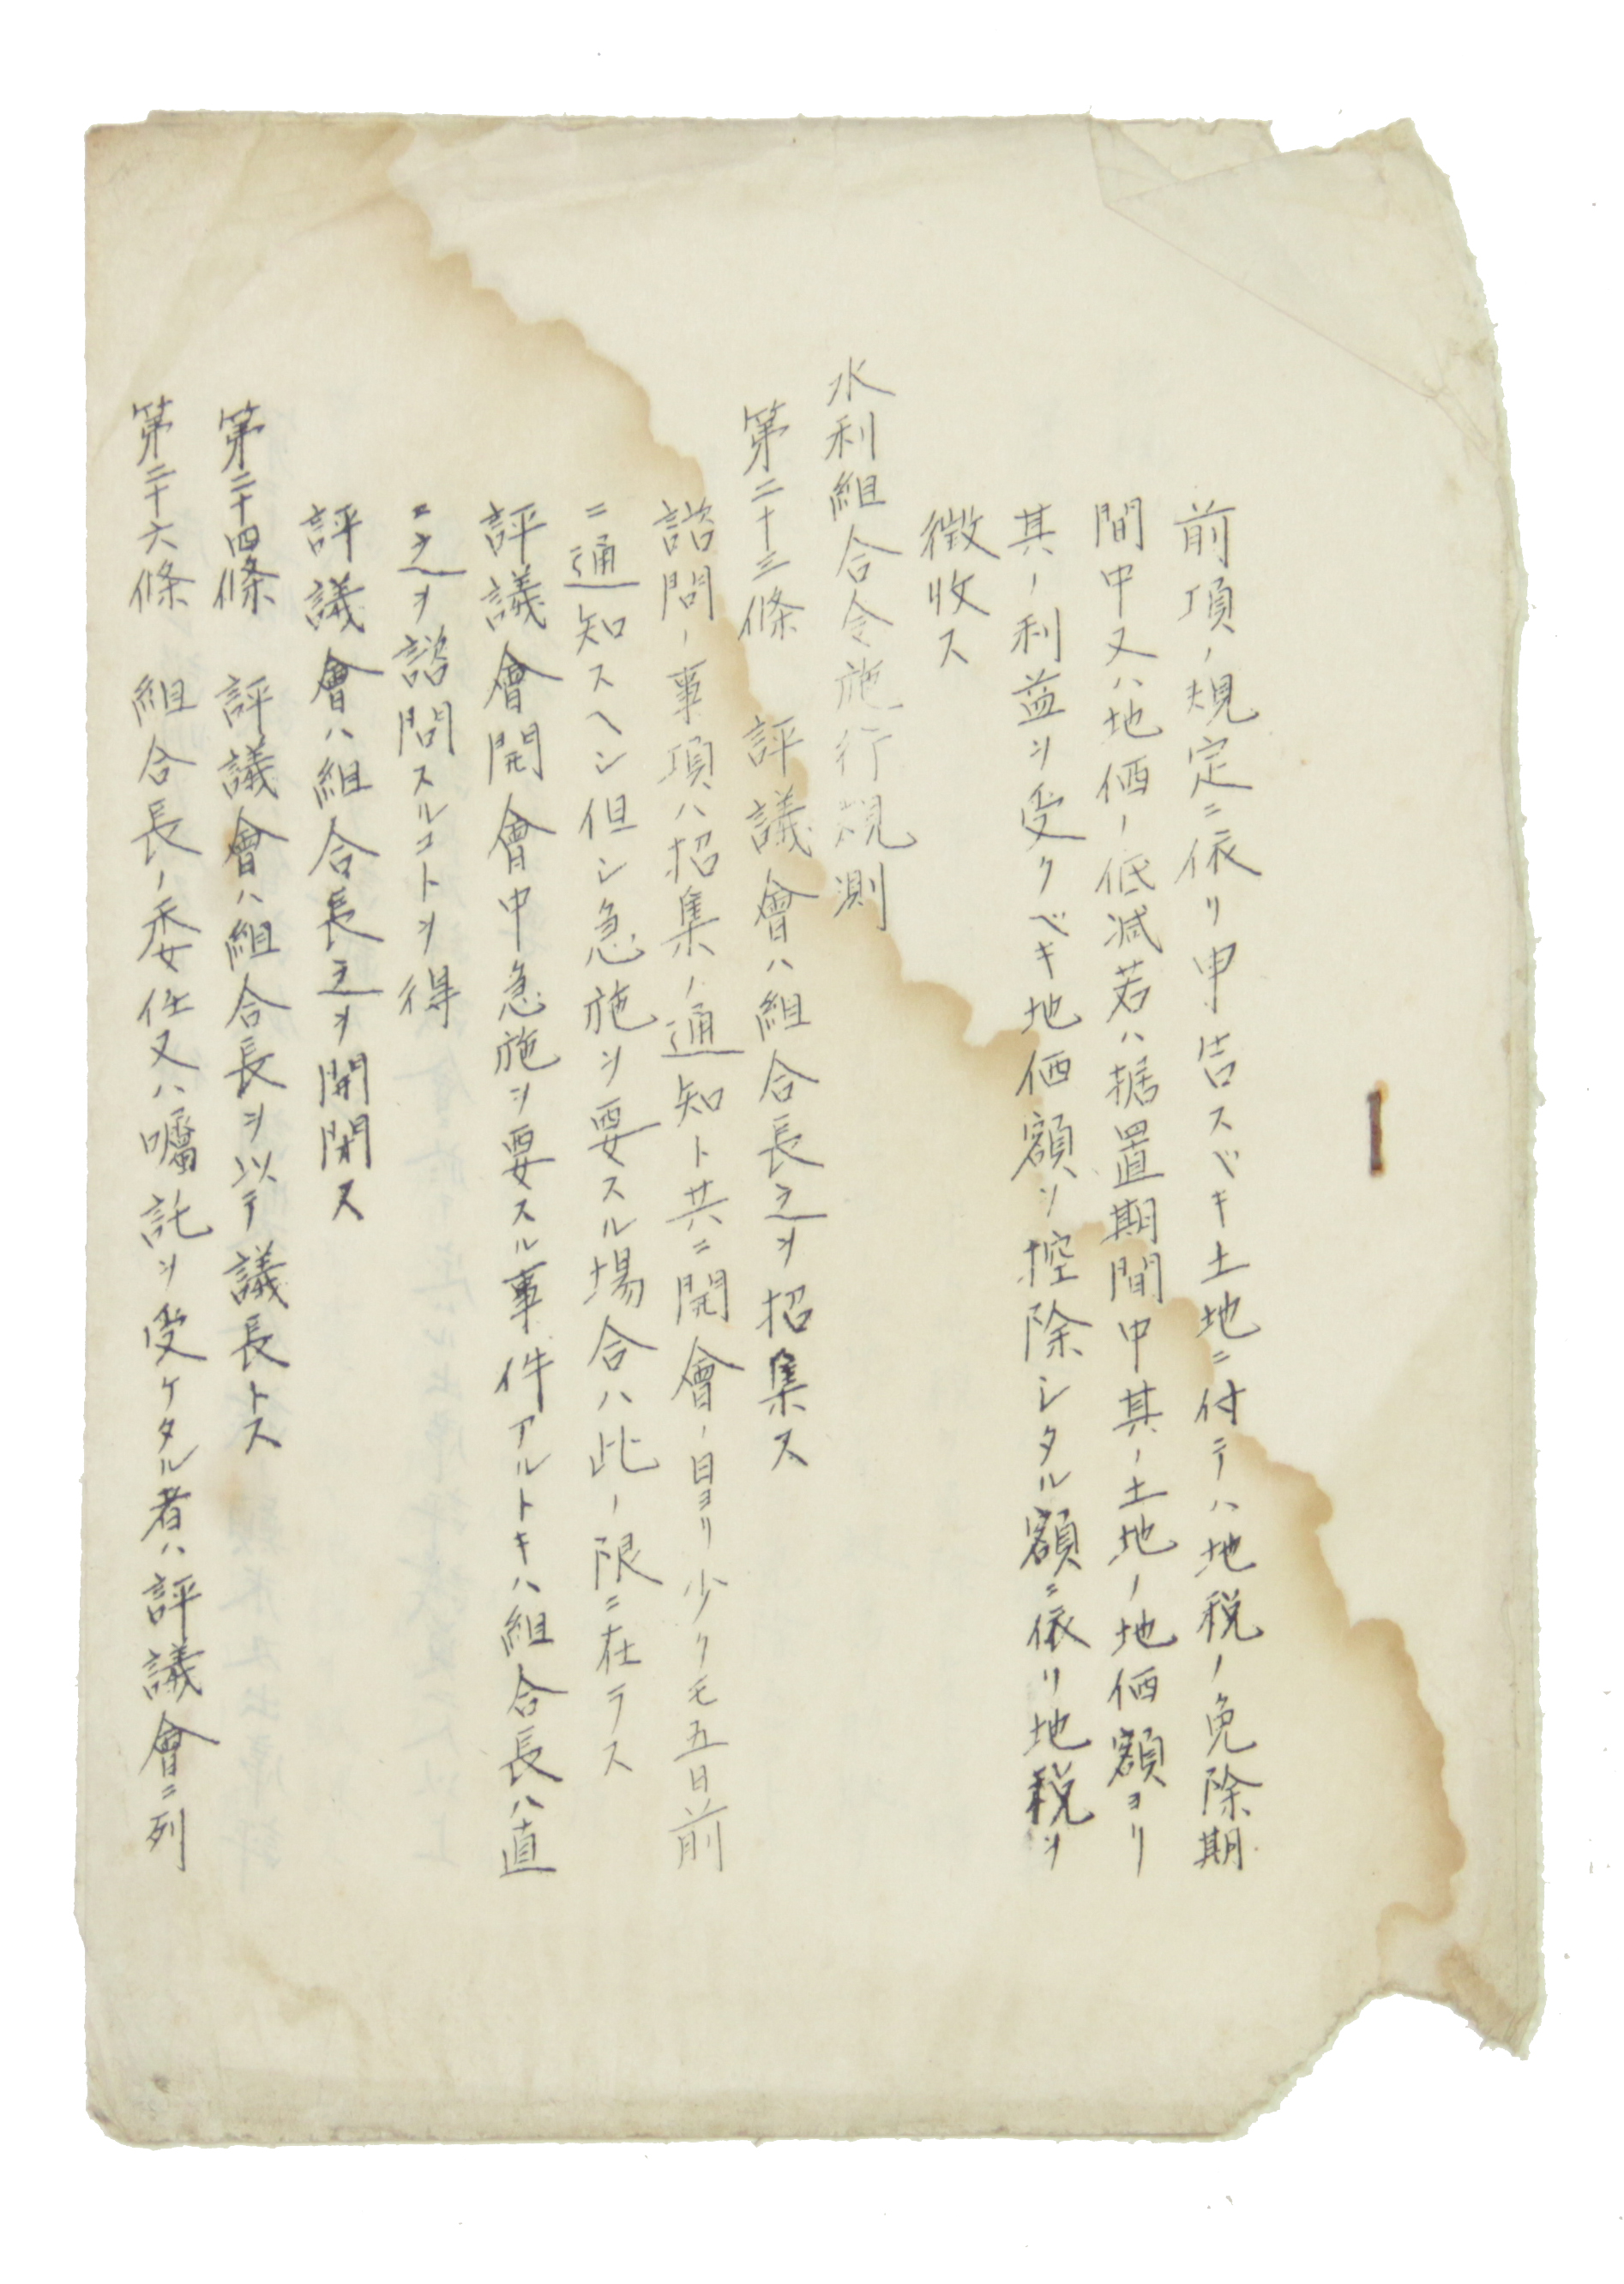 前項ノ規定ニ依リ申告スベキ土地ニ付テハ地税ノ免除期
間中又ハ地価ノ低減若ハ据置期間中其ノ土地ノ地価額ヨリ
其ノ利益ヲ受クベキ地価額ヲ控除シタル額ニ依リ地税ヲ
徴收ス
水利組合令施行規則
第二十三條 評議會ハ組合長之ヲ招集ス
諮問ノ事項ハ招集ノ通知ト共ニ開會ノ日ヨリ少クモ五日前
ニ通知スヘシ但シ急施ヲ要スル場合ハ此ノ限ニ在ラス
評議會開會中急施ヲ要スル事件アルトキハ組合長ハ直
ニ之ヲ諮問スルコトヲ得
評議會ハ組合長之ヲ開閉ス
第二十四條 評議會ハ組合長ヲ以テ議長トス
第二十六條 組合長ノ委任又ハ囑託ヲ受ケタル者ハ評議會ニ列